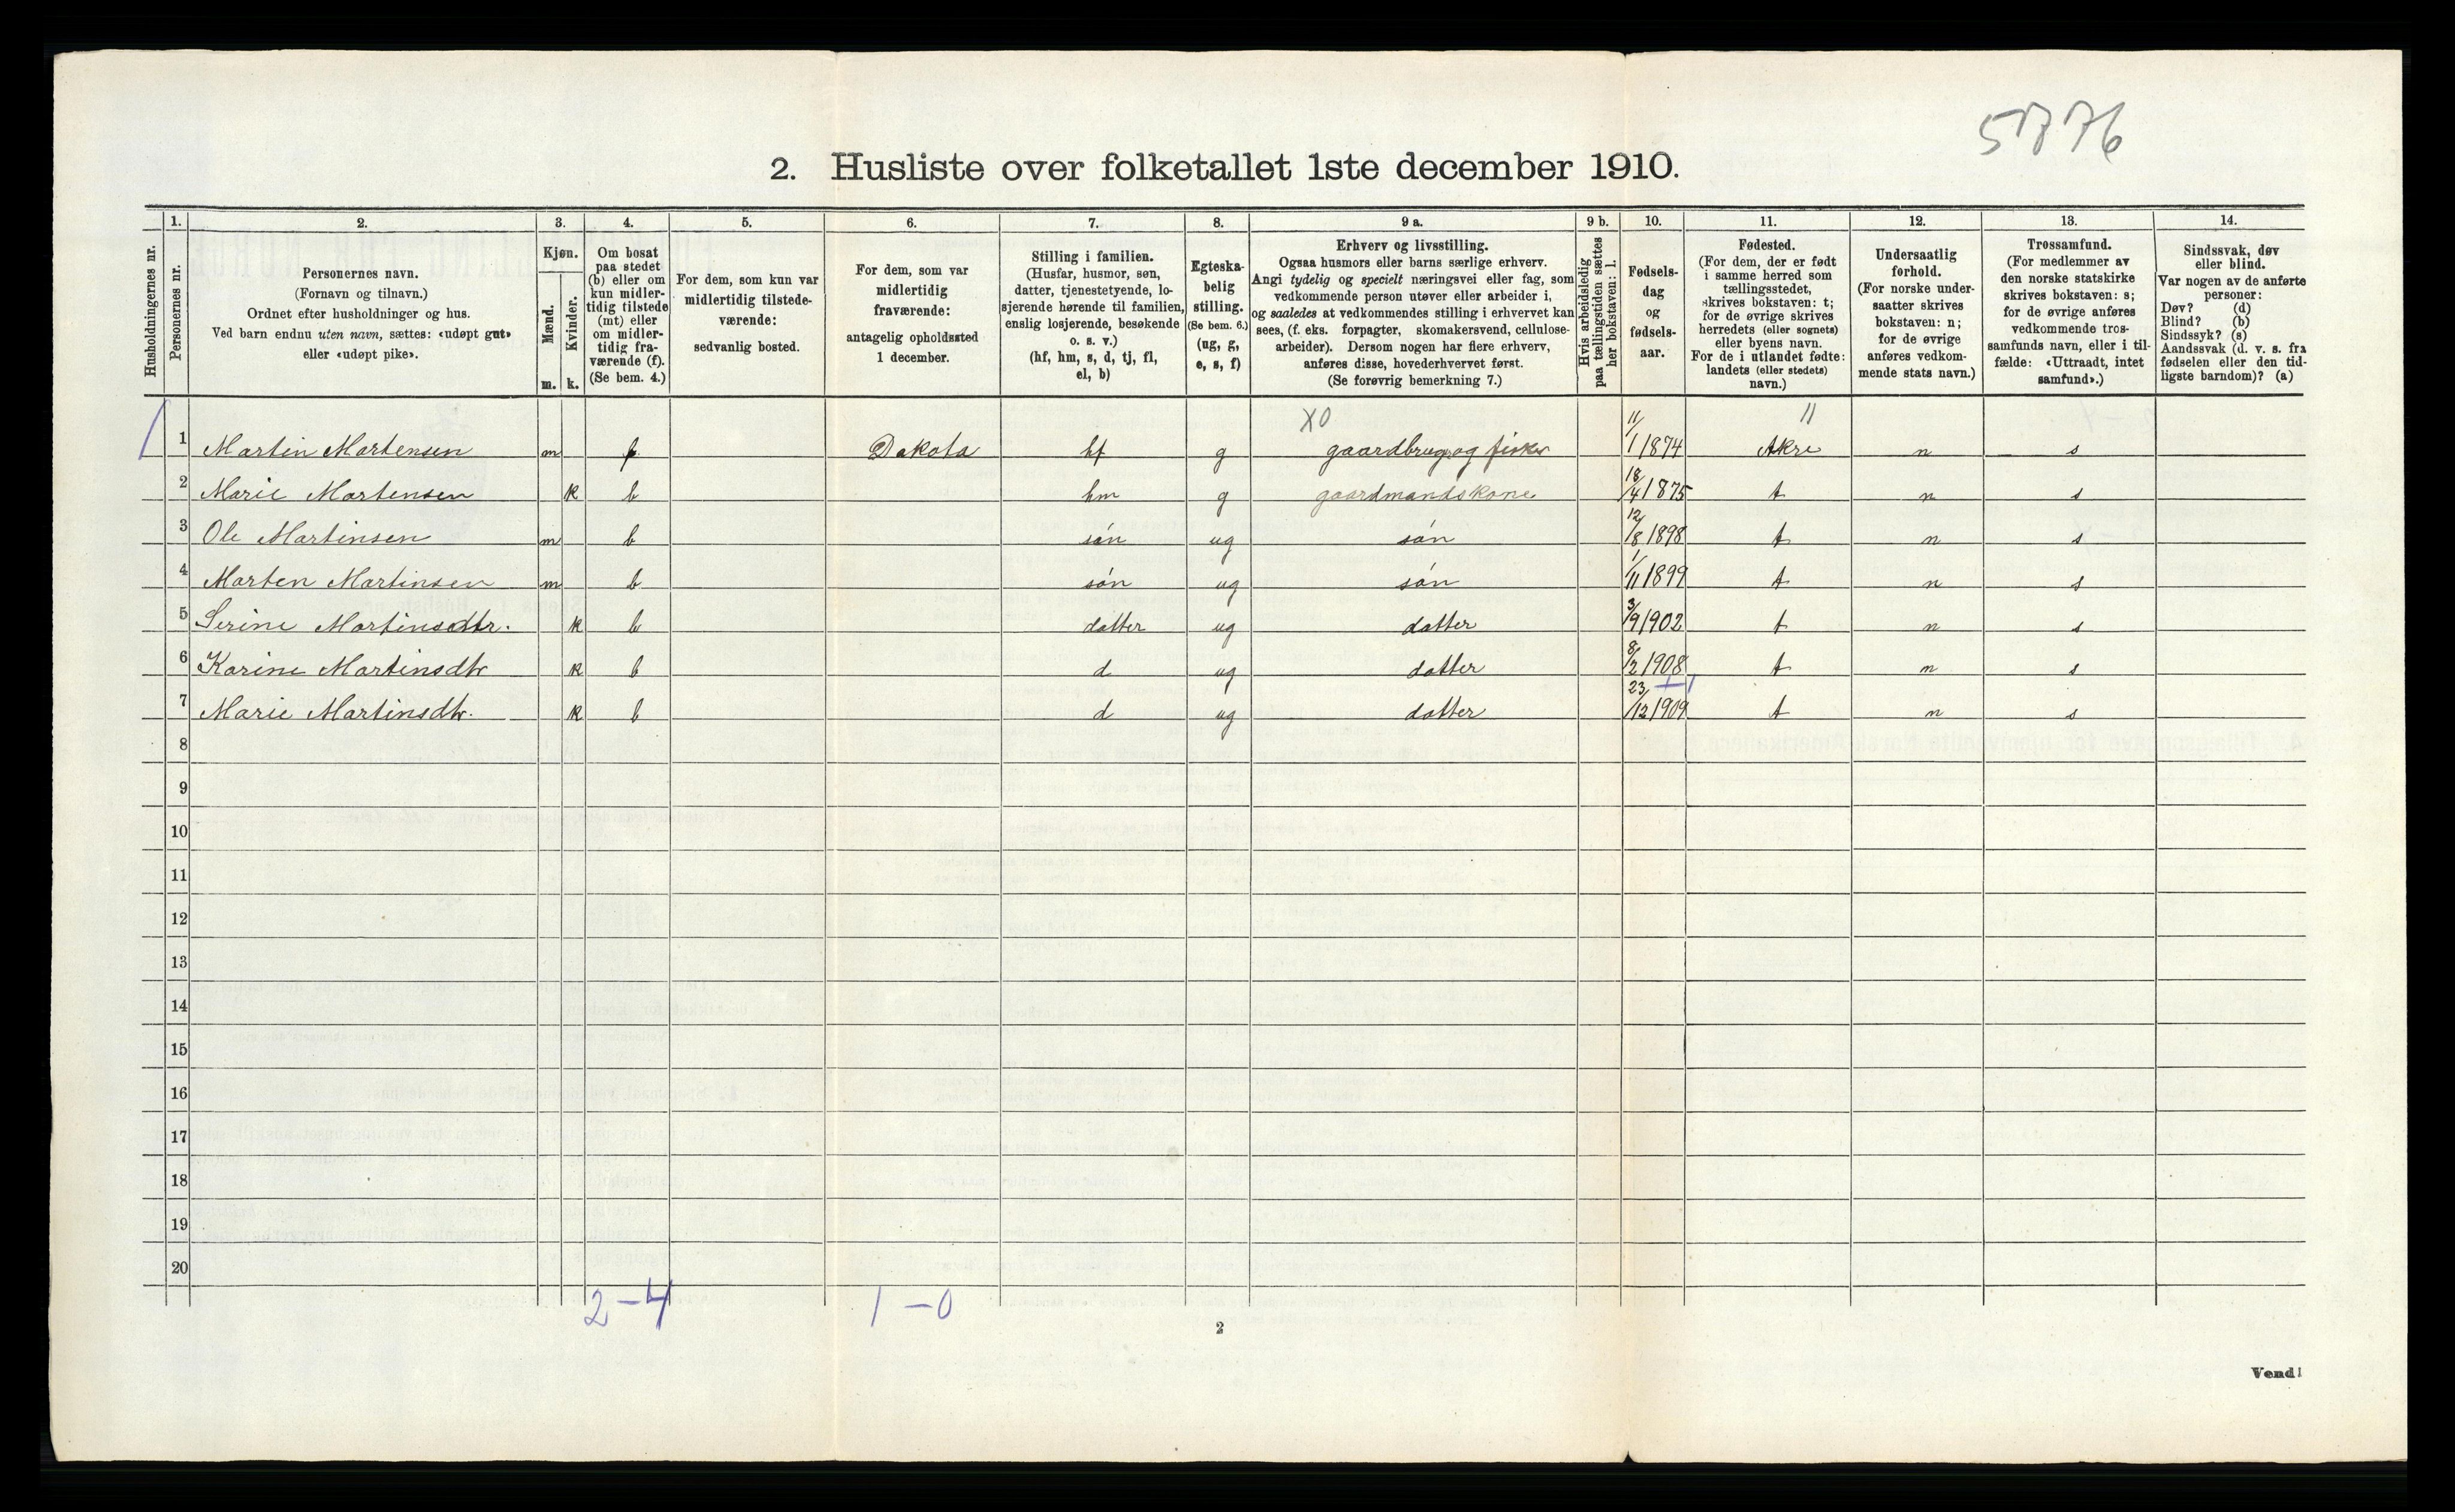 5776
2. Husliste over folketallet 1ste december 1910.
Husholdningernes nr.
1.
Personernes nr.
2.
Personernes navn.
(Fornavn og tilnavn.)
Ordnet efter husholdninger og hus.
Ved barn endnu uten navn, sættes: «udøpt gut»
eller «udøpt pike».
3.
Kjøn.
Mænd.
m.
Kvinder.
k.
4.
Om bosat
paa stedet
(b) eller om
kun midler-
tidig tilstede
(mt) eller
om midler-
tidig fra-
værende (f).
(Se bem. 4.)
5.
For dem, som kun var
midlertidig tilstede-
værende:
sedvanlig bosted.
6.
For dem, som var
midlertidig
fraværende:
antagelig opholdssted
1 december.
7.
Stilling i familien.
(Husfar, husmor, søn,
datter, tjenestetyende, lo-
sjerende hørende til familien,
enslig losjerende, besøkende
o. s. v.)
(hf, hm, s, d, tj, fl,
el, b)
8.
Egteska-
belig
stilling.
(Se bem. 6.)
(ug, g,
e, s, f)
9 a.
Erhverv og livsstilling.
Ogsaa husmors eller barns særlige erhverv.
Angi tydelig og specielt næringsvei eller fag, som
vedkommende person utøver eller arbeider i,
og saaledes at vedkommendes stilling i erhvervet kan
sees, (f. eks. forpagter, skomakersvend, cellulose-
arbeider). Dersom nogen har flere erhverv,
anføres disse, hovederhvervet først.
(Se forøvrig bemerkning 7.)
9 b.
Hvis arbeidsledig
paa tællingstiden sættes
her bokstaven: l.
10.
Fødsels-
dag
og
fødsels-
aar.
11.
Fødested.
(For dem, der er født
i samme herred som
tællingsstedet,
skrives bokstaven: t;
for de øvrige skrives
herredets (eller sognets)
eller byens navn.
For de i utlandet fødte:
landets (eller stedets)
navn.)
12.
Undersaatlig
forhold.
(For norske under-
saatter skrives
bokstaven: n;
for de øvrige
anføres vedkom-
mende stats navn.)
13.
Trossamfund.
(For medlemmer av
den norske statskirke
skrives bokstaven: s;
for de øvrige anføres
vedkommende tros-
samfunds navn, eller i til-
fælde: «Uttraadt, intet
samfund».)
14.
Sindssvak, døv
eller blind.
Var nogen av de anførte
personer:
Døv? (d)
Blind? (b)
Sindssyk? (s)
Aandssvak (d. v. s. fra
fødselen eller den tid-
ligste barndom)? (a)
X0 11
1 Martin Martensen m f Dakota hf g gaardbrug og fisker 11/1 1874 Akre n s
2 Marie Martensen k b hm g gaardmandskone 18/4 1875 t n s
3 Ole Martinsen m b són ug són 12/8 1898 t n s
4 Marten Martinsen m b són ug són 1/11 1899 t n s
5 Serine Martinsdtr. k b datter ug datter 3/9 1902 t n s
6 Karine Martinsdtr k b d ug datter 8/2 1908 t n s
7 Marie Martinsdtr. k b d ug datter 23/12 1909 t n s
8
9
10
11
12
13
14
15
16
17
18
19
20
2-4 1-0
2
Vend!